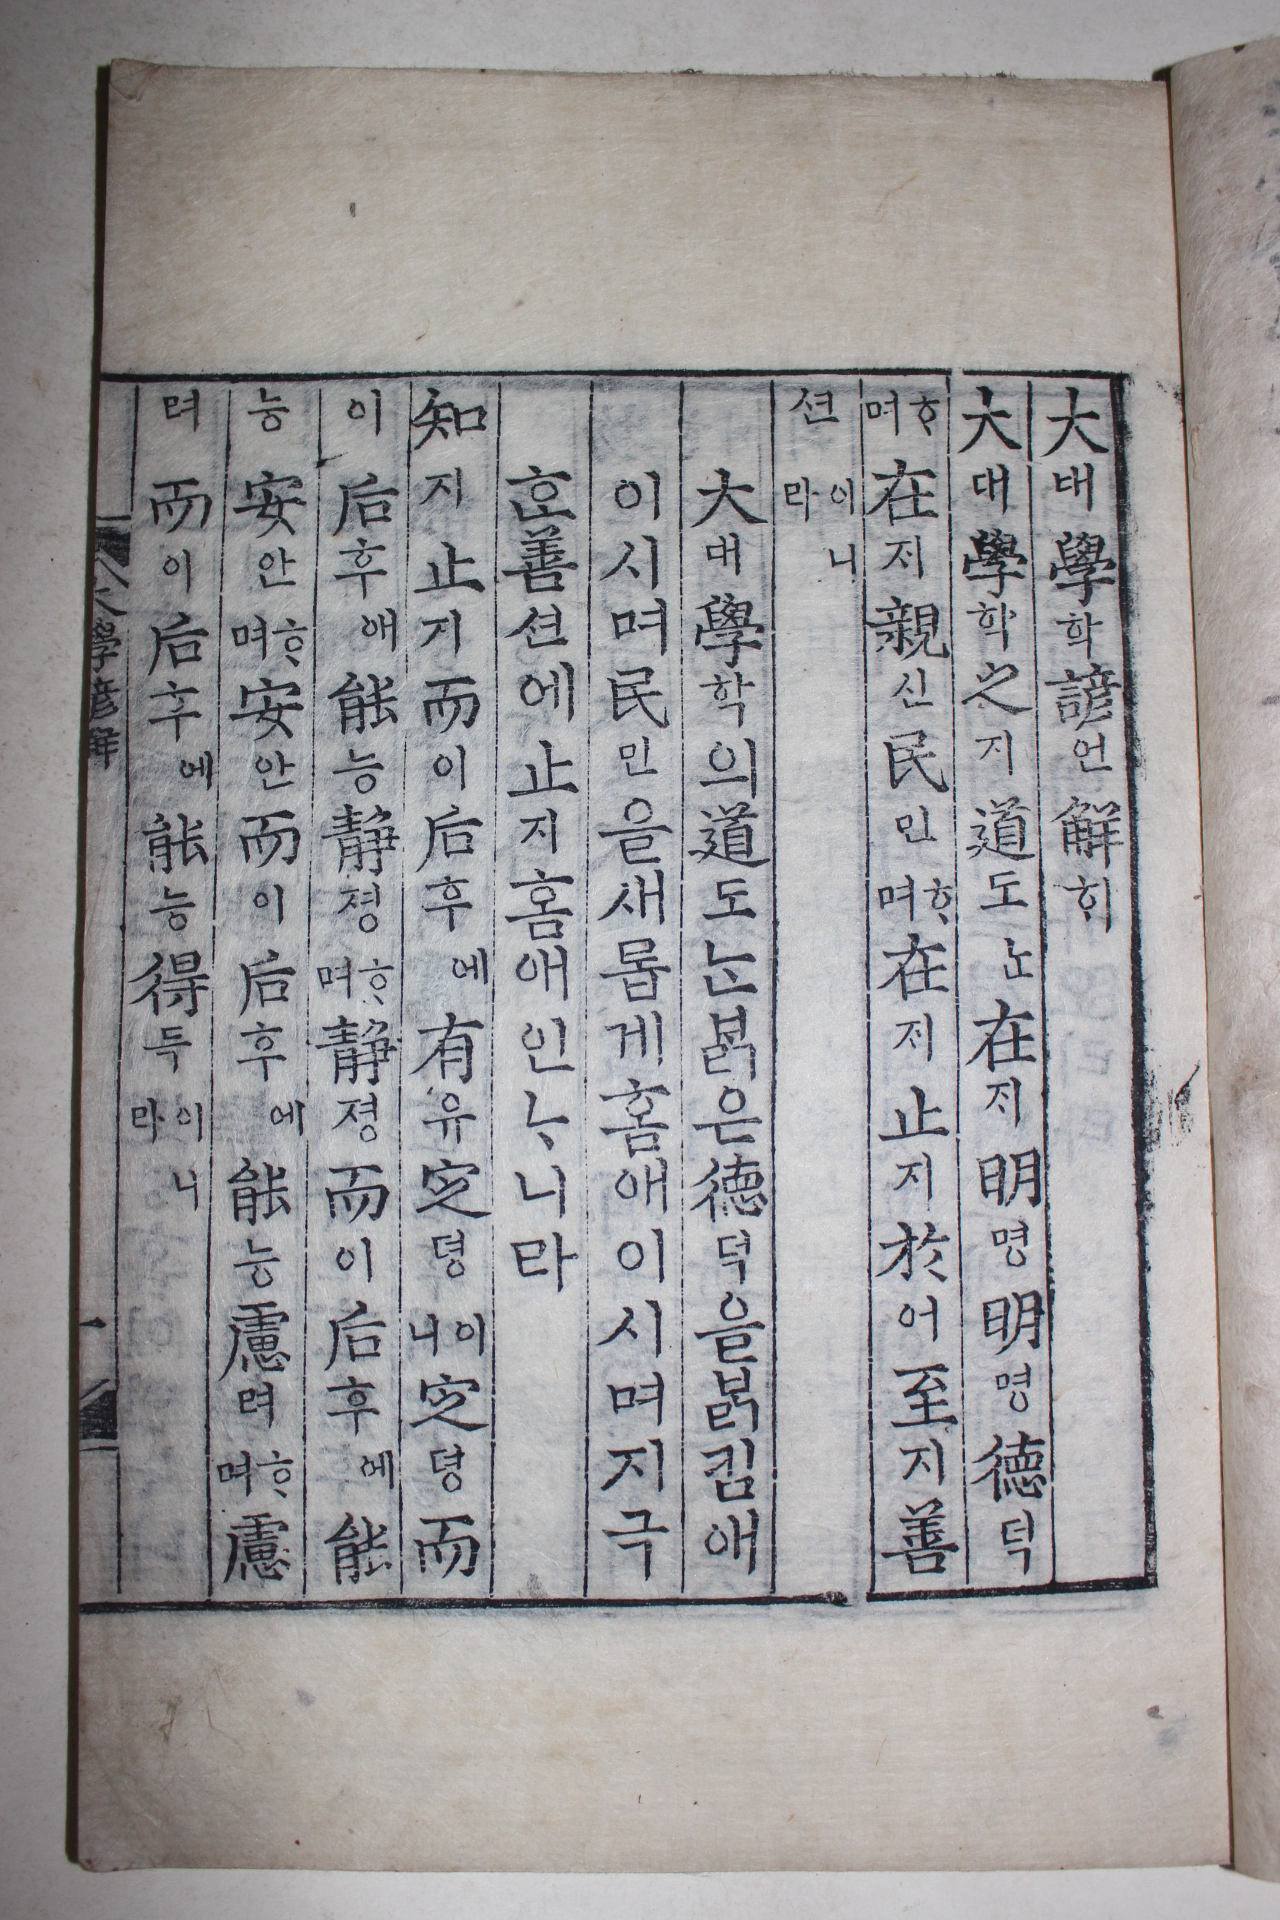 大태學학諺언解ᄒᆡ
大대學학之지道도ᄂᆞᆫ在ᄌᆡ明명明명德덕
ᄒᆞ며在ᄌᆡ親신民민ᄒᆞ며在ᄌᆡ止지於어至지善
션이니라
大대學학의道도ᄂᆞᆫᄇᆞᆰ은德덕을ᄇᆞᆰ킴애
이시며民민을새롭게홈애이시며지극
ᄒᆞᆫ善션에止지홈애인ᄂᆞ니라
知지止지而이后후에有유定뎡이니定뎡而
이后후애能능靜졍ᄒᆞ며靜졍而이后후에能
능安안ᄒᆞ며安안而이后후에能능慮려ᄒᆞ며慮
려而이后후에能능得득이니라
大學諺解 一